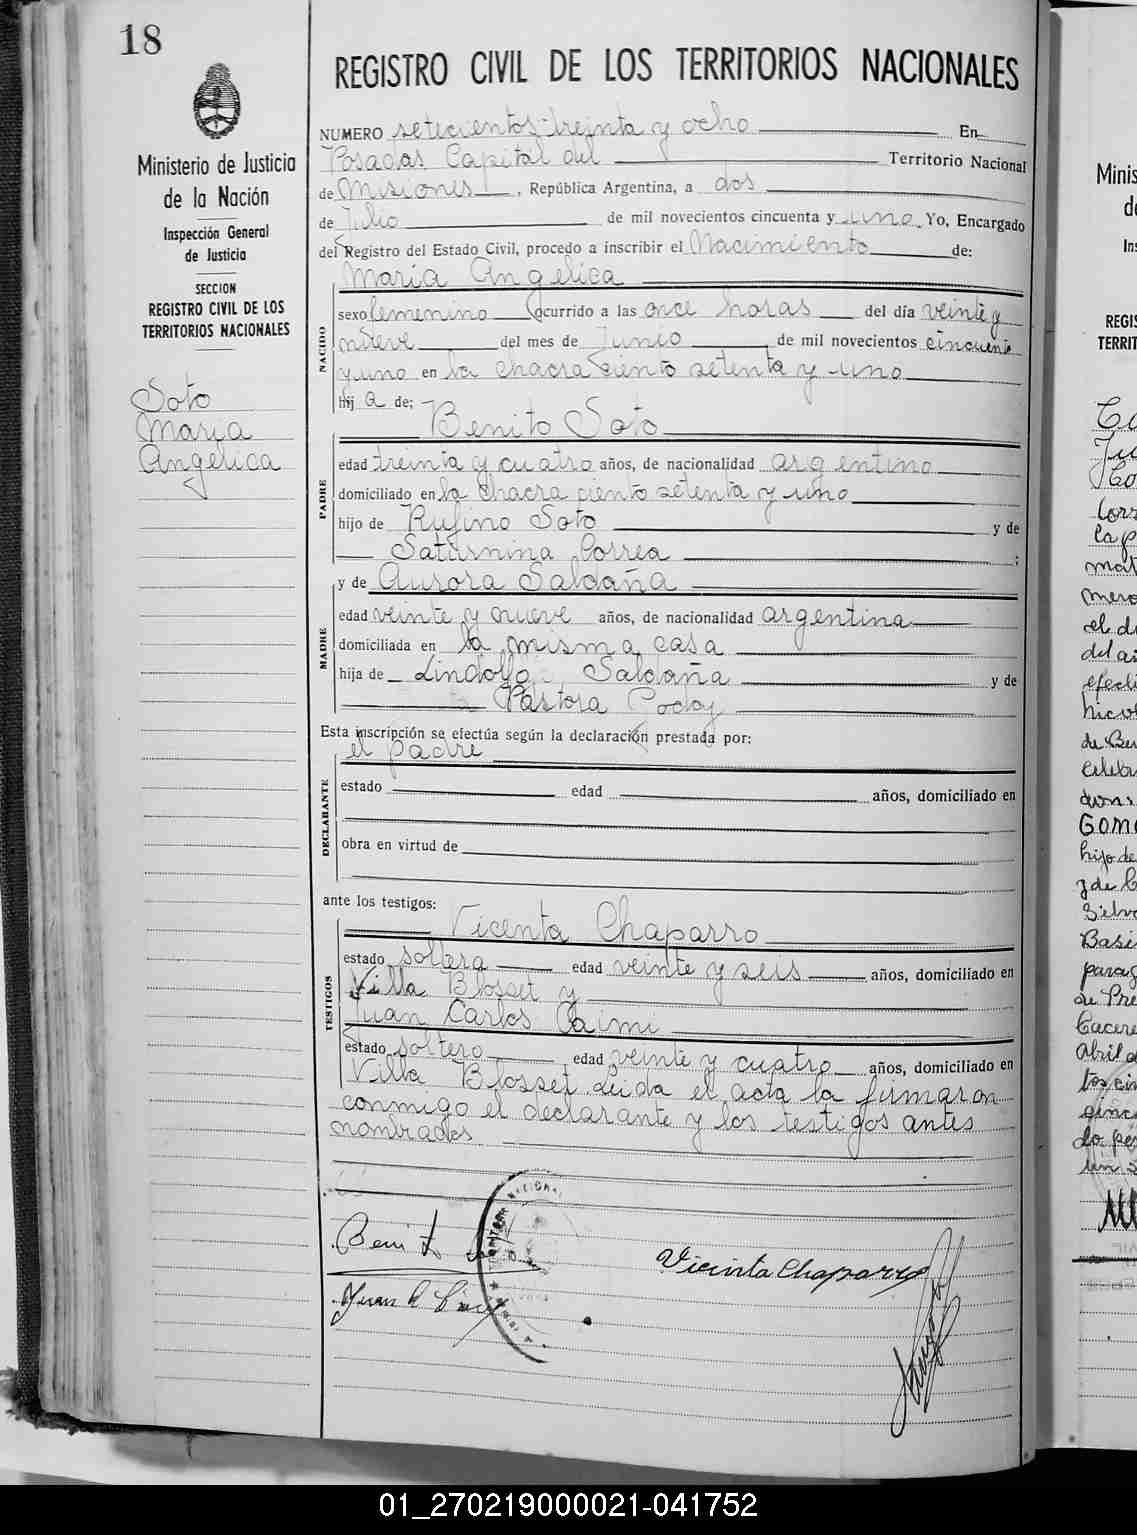 18
Ministerio de Justicia
de la Nación
Inspección General
de Justicia
SECCION
REGISTRO CIVIL DE LOS
TERRITORIOS NACIONALES
Soto
María
Angélica
REGISTRO CIVIL DE LOS TERRITORIOS NACIONALES
NUMERO setecientos treinta y ocho En
Posadas Capital del Territorio Nacional
de Misiones, República Argentina, a dos
de Julio de mil novecientos cincuenta y uno Yo, Encargado
del Registro del Estado Civil, procedo a inscribir el Nacimiento de:
María Angélica
NACIDO
sexo femenino ocurrido a las once horas del día veinte y
nueve del mes de Junio de mil novecientos cincuenta
y uno en la chacra ciento setenta y uno
hij a de:
Benito Soto
PADRE
edad treinta y cuatro años, de nacionalidad argentino
domiciliado en la chacra ciento setenta y uno
hijo de Rufino Soto y de
Saturnina Correa ;
y de Aurora Saldaña
MADRE
edad veinte y nueve años, de nacionalidad argentina
domiciliada en la misma casa
hija de Lindolfo Saldaña y de
Pastora Godoy
Esta inscripción se efectúa según la declaración prestada por:
el padre
DECLARANTE
estado edad años, domiciliado en
obra en virtud de
ante los testigos:
Vicenta Chaparro
TESTIGOS
estado soltera edad veinte y seis años, domiciliado en
Villa Blosset y
Juan Carlos Caimi
estado soltero edad veinte y cuatro años, domiciliado en
Villa Blosset. Leida el acta la firmaron
conmigo el declarante y los testigos antes
nombrados
Benito
Vicenta Chaparro
Juan C
01_270219000021-041752